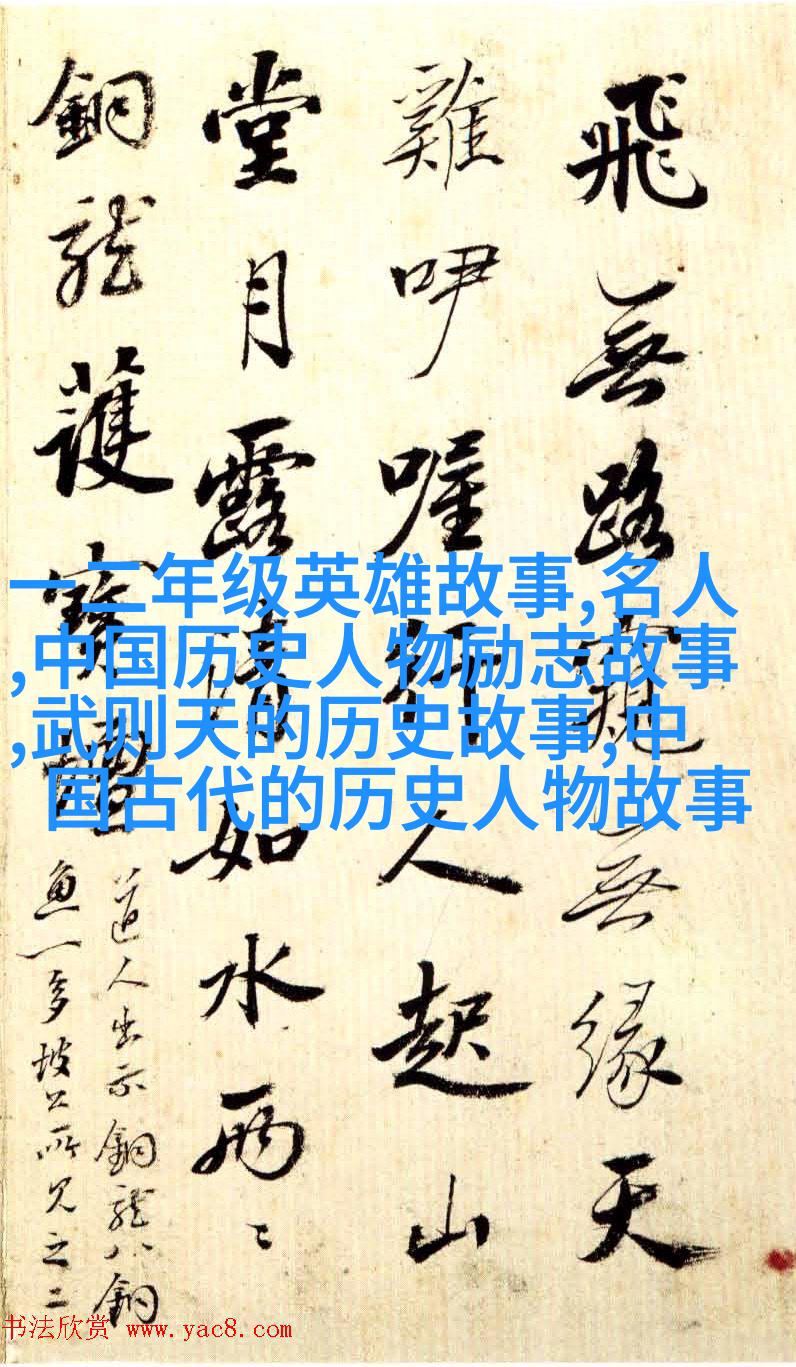 飛無路窺無緣天
雞咿喔人起山
堂月露清如水兩〻
銅龍護寶
道人出示銅龍八銅
魚一多坡公所見之二
一二年级英雄故事,名人
,中国历史人物励志故事
,武则天的历史故事,中
国古代的历史人物故事
书法欣赏 www.yac8.com